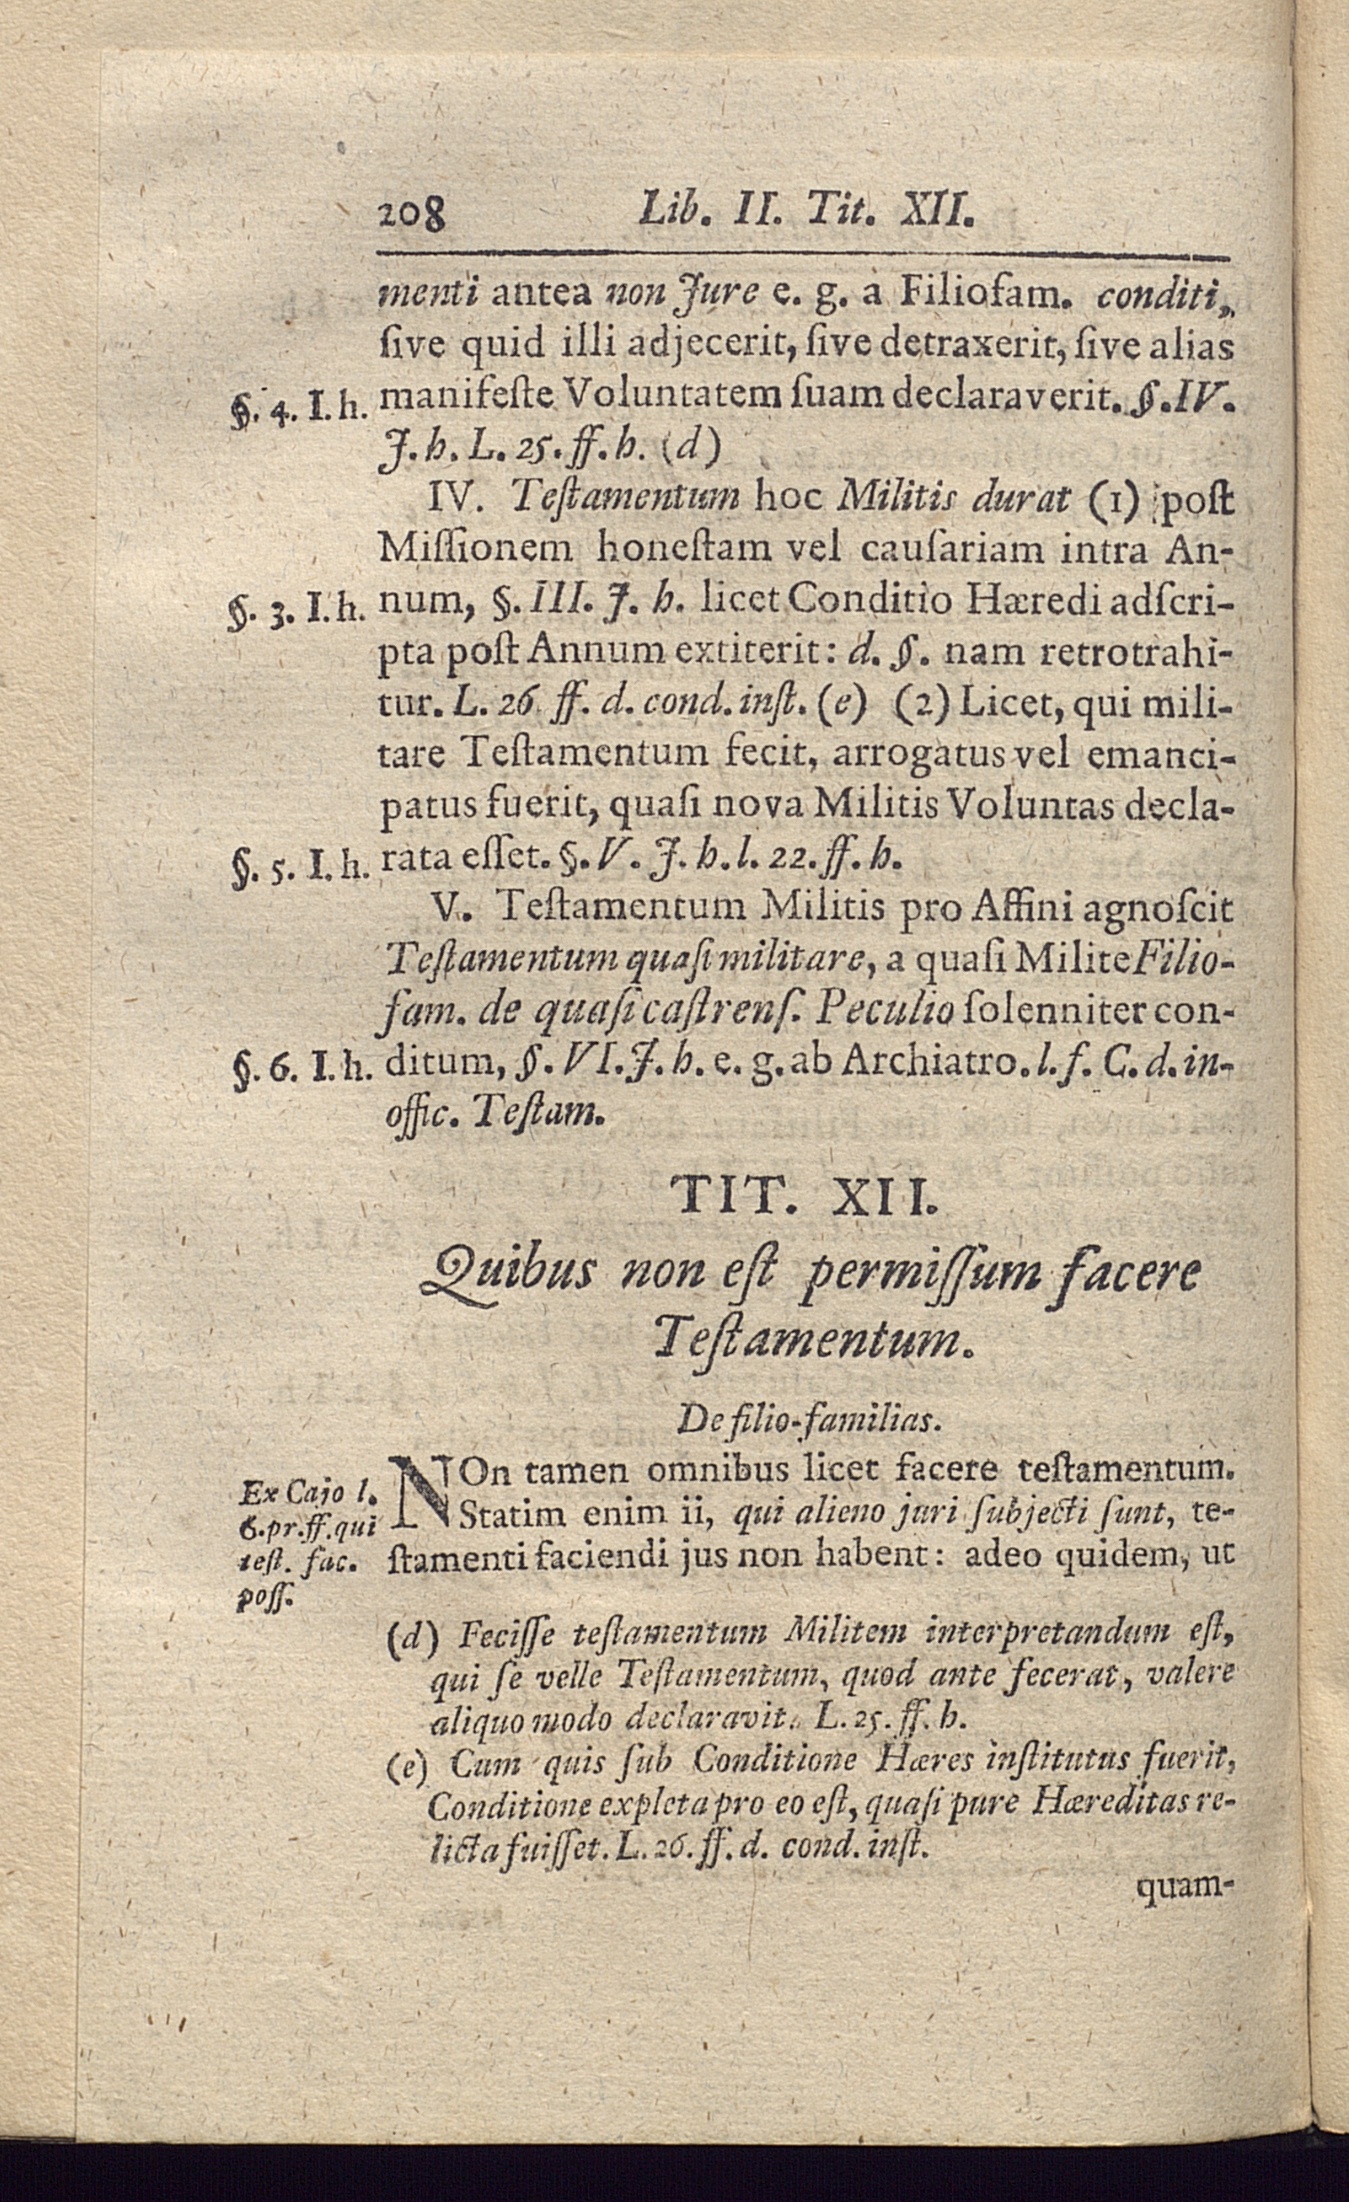 208 Lib. II. Tit. XII.
menti antea non Jure e. g. a Filiofam. conditi,
ſive quid illi adjecerit, ſive detraxerit, ſive alias
§. 4. I. h. manifeſte Voluntatem ſuam declaraverit. §. IV.
J. h. L. 25. ff. h. (d)
IV. Teſtamentum hoc Militis durat (1) poſt
Miſſionem honeſtam vel cauſariam intra An-
§. 3. I. h. num, §. III. J. h. licet Conditio Hæredi adſcri-
pta poſt Annum extiterit: d. §. nam retrotrahi-
tur. L. 26. ff. d. cond. inſt. (e) (2) Licet, qui mili-
tare Teſtamentum fecit, arrogatus vel emanci-
patus fuerit, quaſi nova Militis Voluntas decla-
§. 5. I. h. rata eſſet. §. V. J. h. l. 22. ff. h.
V. Teſtamentum Militis pro Affini agnoſcit
Teſtamentum quaſi militare, a quaſi Milite Filio-
fam. de quaſi caſtrenſ. Peculio ſolenniter con-
§. 6. I. h. ditum, §. VI. J. h. e. g. ab Archiatro. l. f. C. d. in-
offic. Teſtam.
TIT. XII.
Quibus non eſt permiſſum facere
Teſtamentum.
De filio-familias.
NOn tamen omnibus licet facere teſtamentum.
Statim enim ii, qui alieno juri ſubjecti ſunt, te-
ſtamenti faciendi jus non habent: adeo quidem, ut
Ex Cajo l.
6. pr. ff. qui
teſt. fac.
poſſ.
(d) Feciſſe teſtamentum Militem interpretandum eſt,
qui ſe velle Teſtamentum, quod ante fecerat, valere
aliquo modo declaravit. L. 25. ff. h.
(e) Cum quis ſub Conditione Hæres inſtitutus fuerit,
Conditione expleta pro eo eſt, quaſi pure Hæreditas re-
licta fuiſſet. L. 26. ff. d. cond. inſt.
quam-